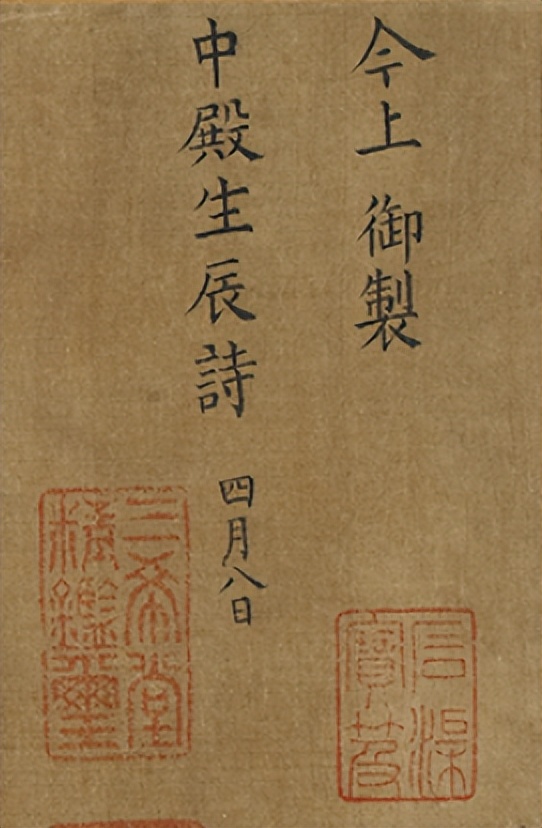 今上 御製
中殿生辰詩 四月八日
三希堂
精鑑璽